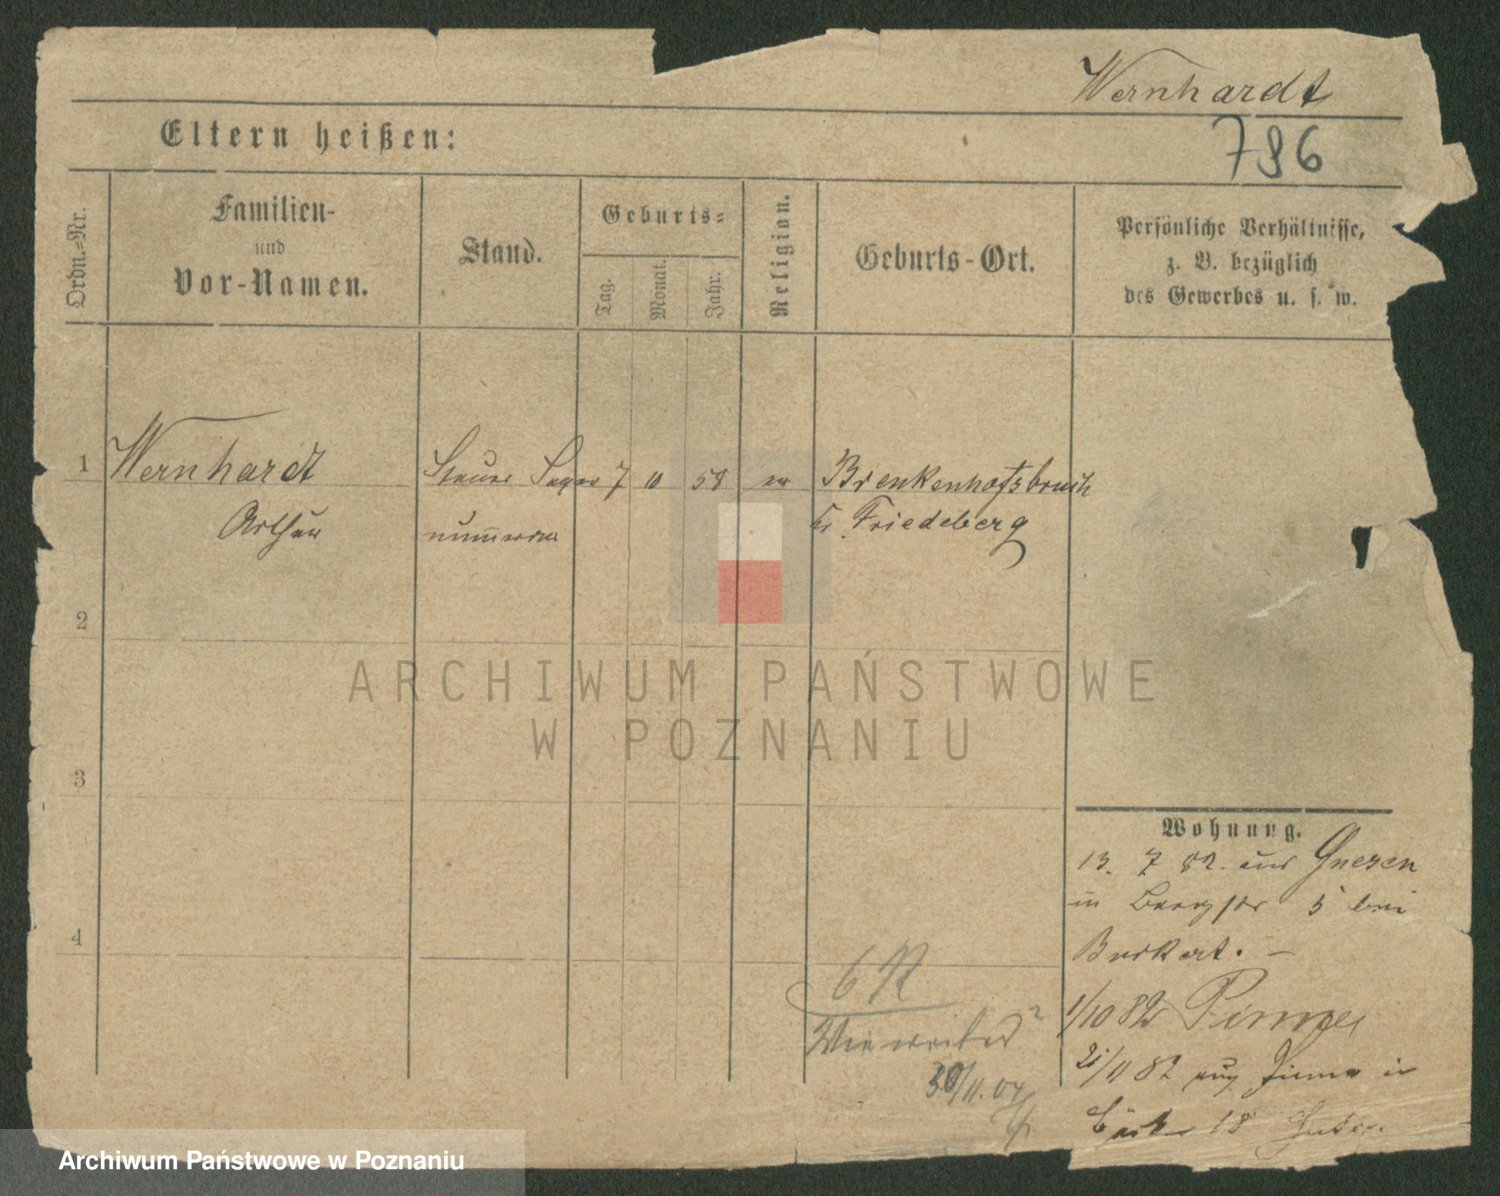 Wernhardt
786
Eltern heißen:
Ordn.=Nr.
Familien-
und
Vor-Namen.
Stand.
Geburts=
Tag.
Monat.
Jahr.
Religion.
Geburts-Ort.
Persönliche Verhältnisse,
z. B. bezüglich
des Gewerbes u. s. w.
1 Wernhardt 7 10 58 ev Brenkenhofsbruch
Arthur Kr. Friedeberg
2
3
4
ARCHIWUM PAŃSTWOWE
W POZNANIU
Wohnung.
13. 7 82. aus Gnesen
in 5 bei
Burkert. —
1/10 82 Pinne
21/11 82 Pinne in
18
6 N
30/11. 04
Archiwum Państwowe w Poznaniu